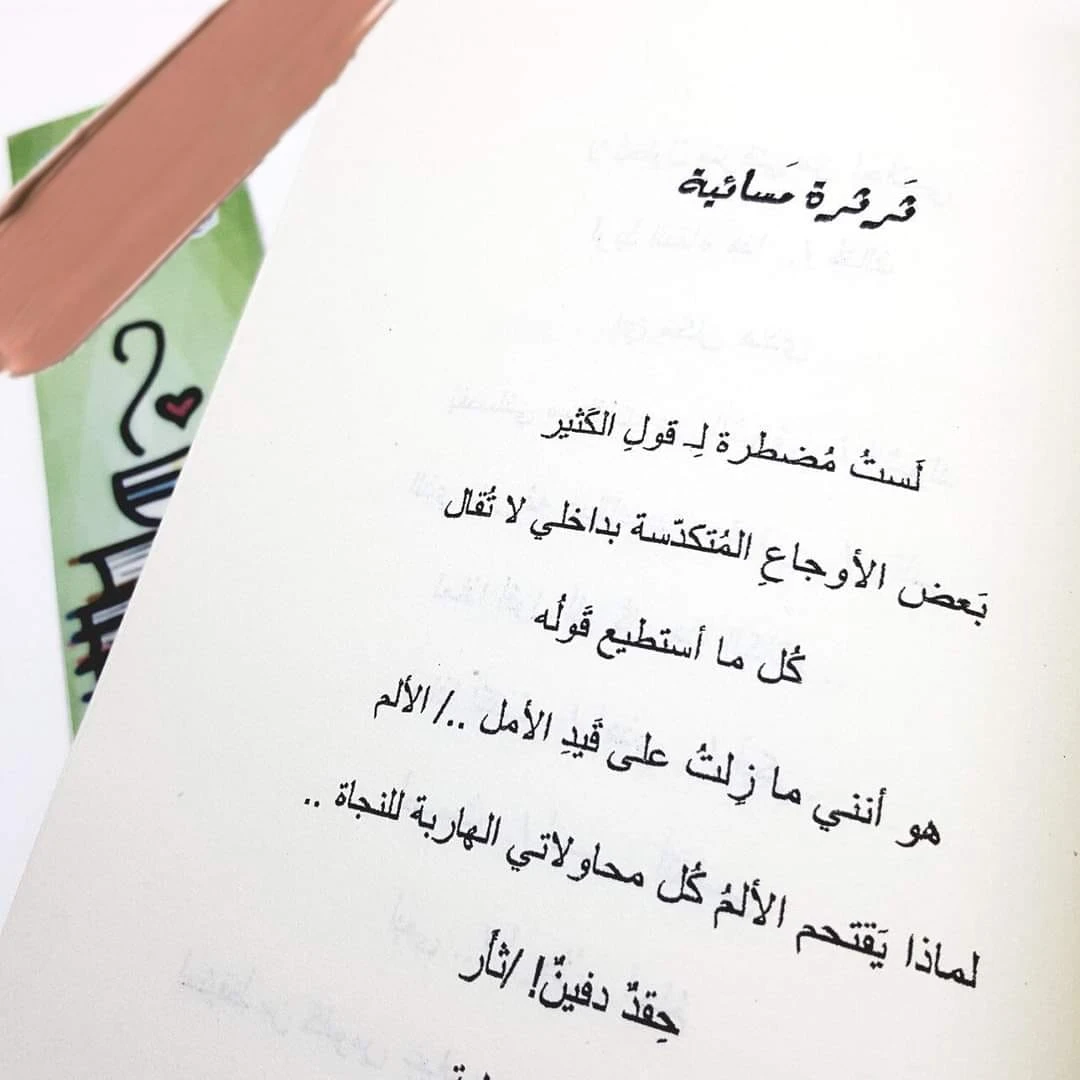 ثَرثرة مَسائية
لَستُ مُضطرة لِـ قولِ الكَثير
بَعض الأوجاعِ المُتكدّسة بداخلي لا تُقال
كُل ما أستطيع قَولُه
هو أنني ما زِلتُ على قَيدِ الأمل ../ الألم
لماذا يَقتحم الألمُ كُل محاولاتي الهاربة للنجاة ..
حِقدٌ دفينٌ! /ثأر